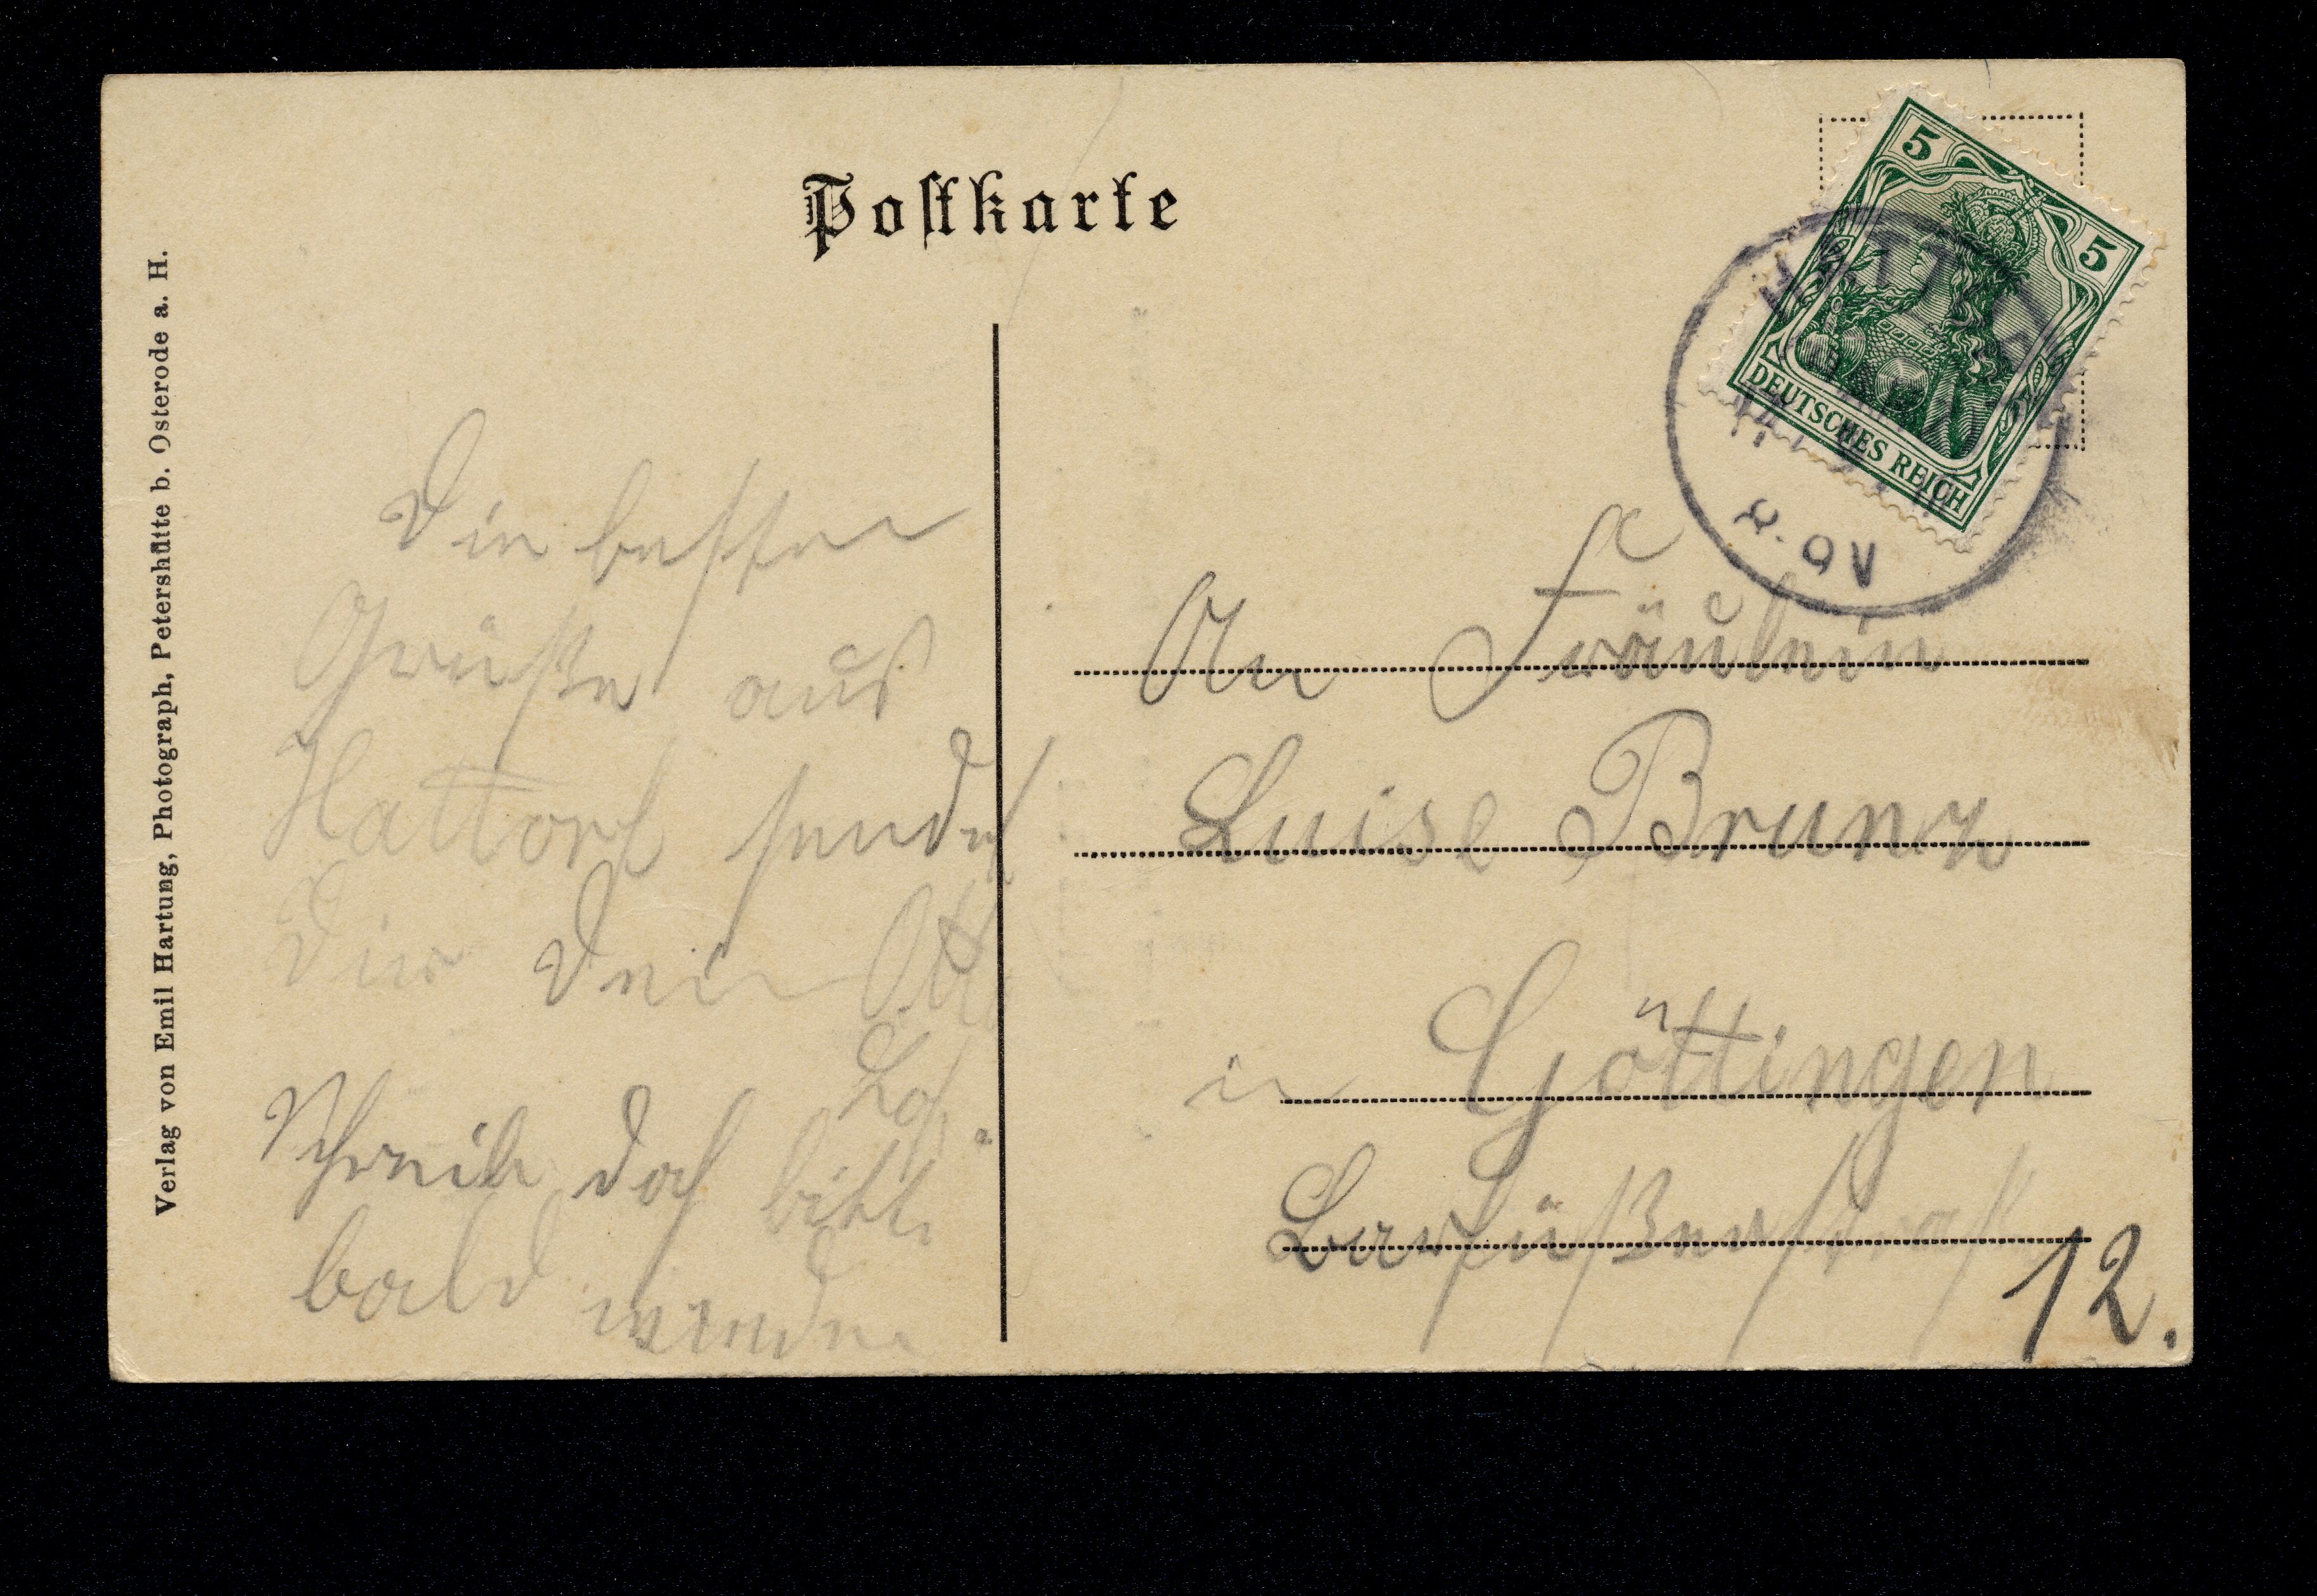 Postkarte
Verlag von Emil Hartung, Photograph, Petershütte b. Osterode a. H.
5
5
DEUTSCHES REICH
8-9V
Die besten
Grüße aus
Hattorf sendet
Dir Dein
Schreib doch bitte
bald wieder
An Fräulein
Luise Brunz
in Göttingen
Barfüßerstraß
12.